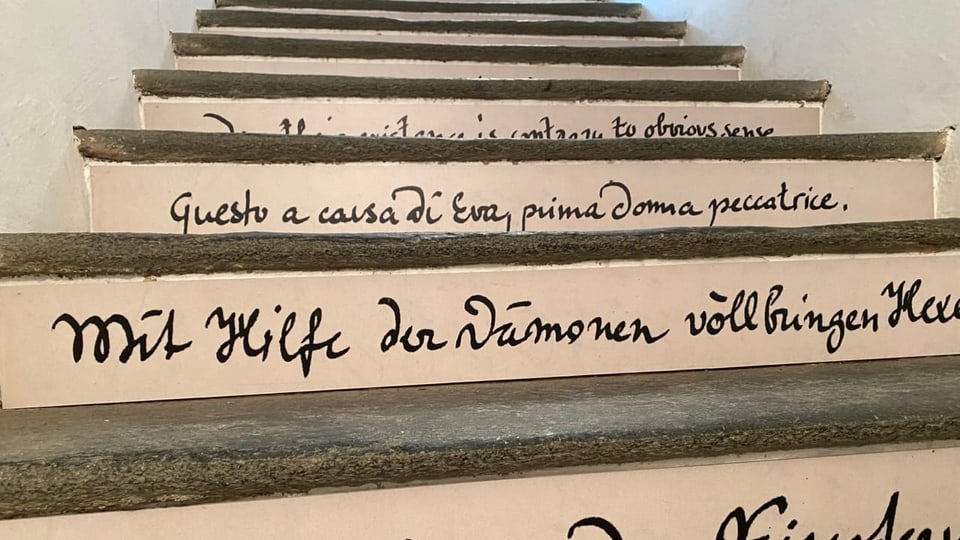 existence is contrary to obvious sense
Questo a causa di Eva, prima donna peccatrice.
Mit Hilfe der Dämonen vollbringen Hexe